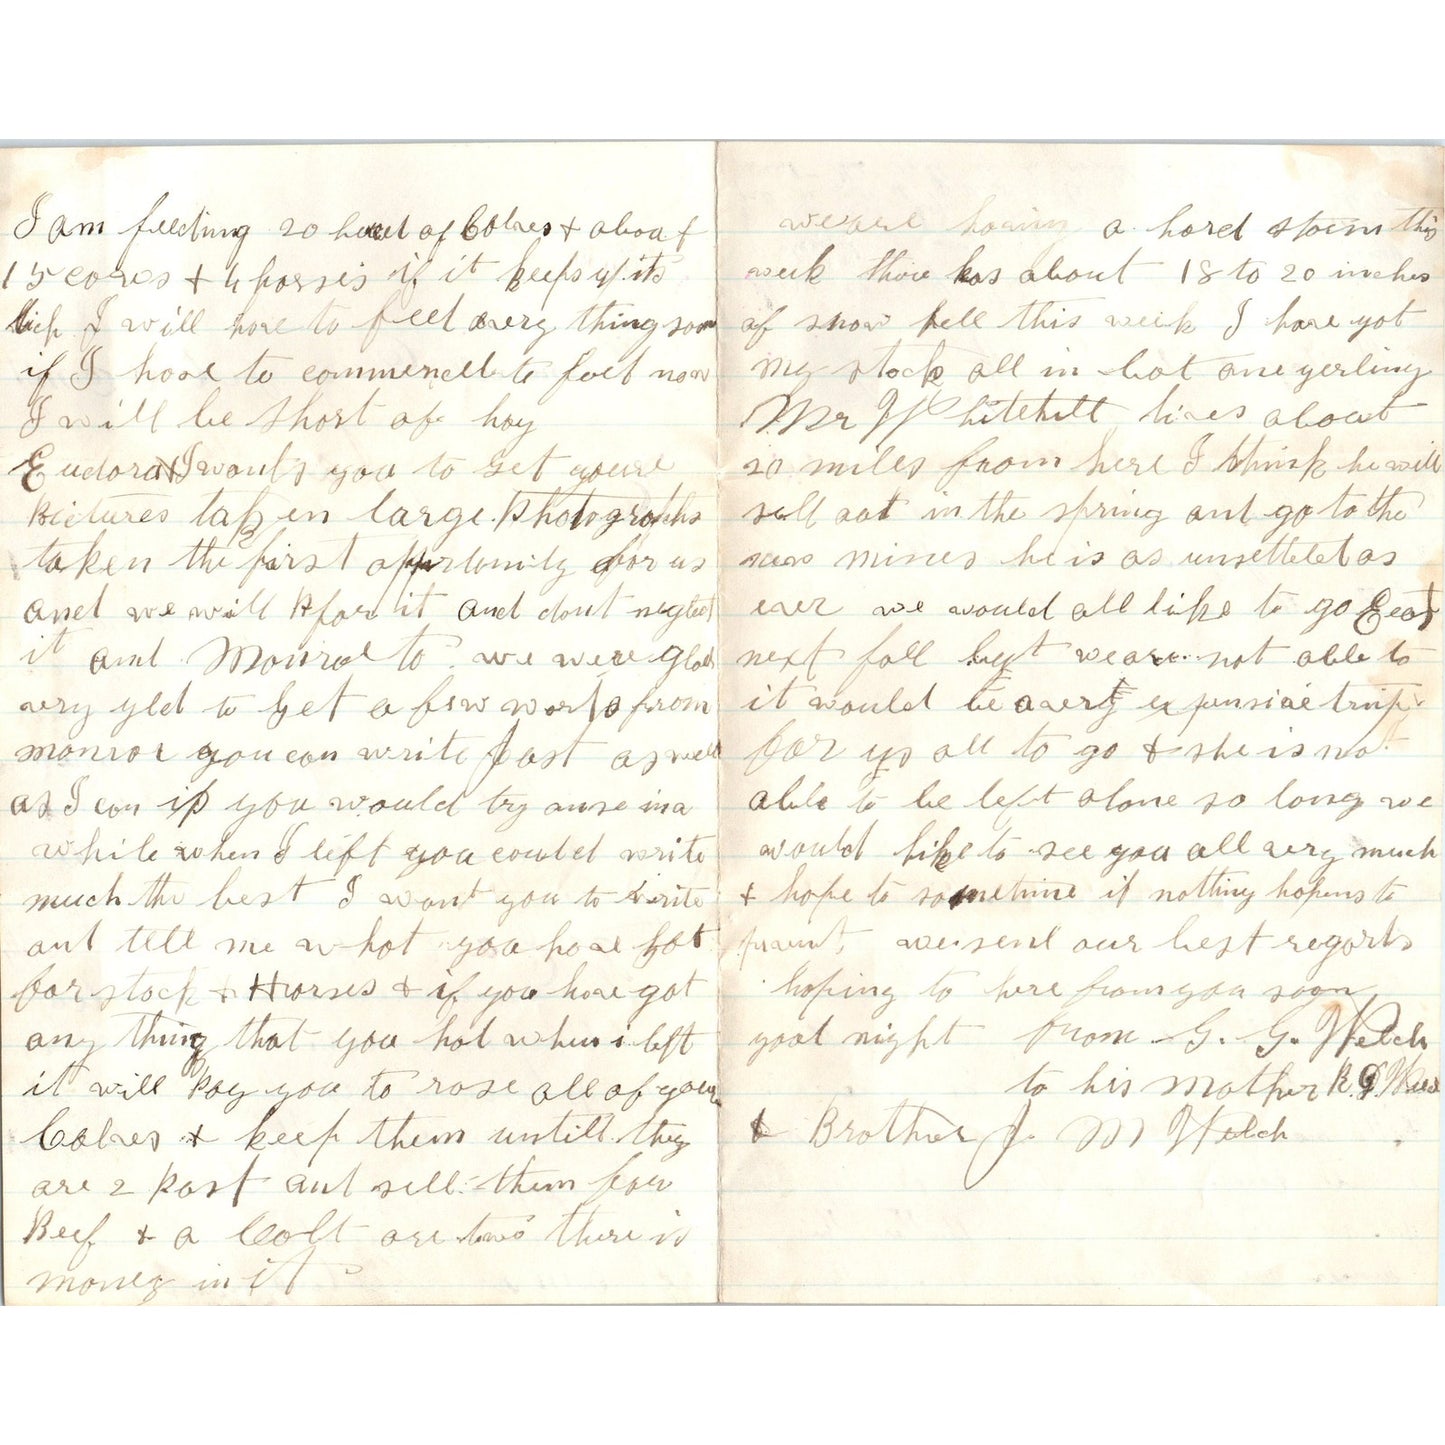 I am feeding 20 head of Calves & about
15 cows & 4 horses if it keeps up its
lick I will have to feed every thing soon
if I have to commenced to feed now
I will be short of hay
Eudora I wants you to get youre
Pictures taken large. Photographs
taken the first oppurtunity for us
and we will pay for it and dont neglect
it and Monroe to we were glad
very gld to get a few words from
monroe you can write Just as well
as I can if you would try onse in a
while when I left you could write
much the best I want you to write
and tell me what you have got
for stock & Horses & if you have got
any thing that you had when i left
it will pay you to rase all of your
Calves & keep them untill they
are 2 past and sell them for
Beef & a Colt are two there is
money in it
we are having a hard storm this
week thare has about 18 to 20 inches
of snow fell this week I have got
my stock all in but one yerling
Mr Whitehill lives about
20 miles from here I think he will
sell out in the spring and go to the
new mines he is as unsetteled as
ever we would all like to go East
next fall but we are not able to
it would be a very expensive trip
for us all to go & she is not
able to be left alone so long we
would like to see you all very much
& hope to sometime if nothing hapens to
prevent we send our best regards
hoping to here from you soon
good night from G. G. Welch
to his Mother R. G.
& Brother J. M Welch